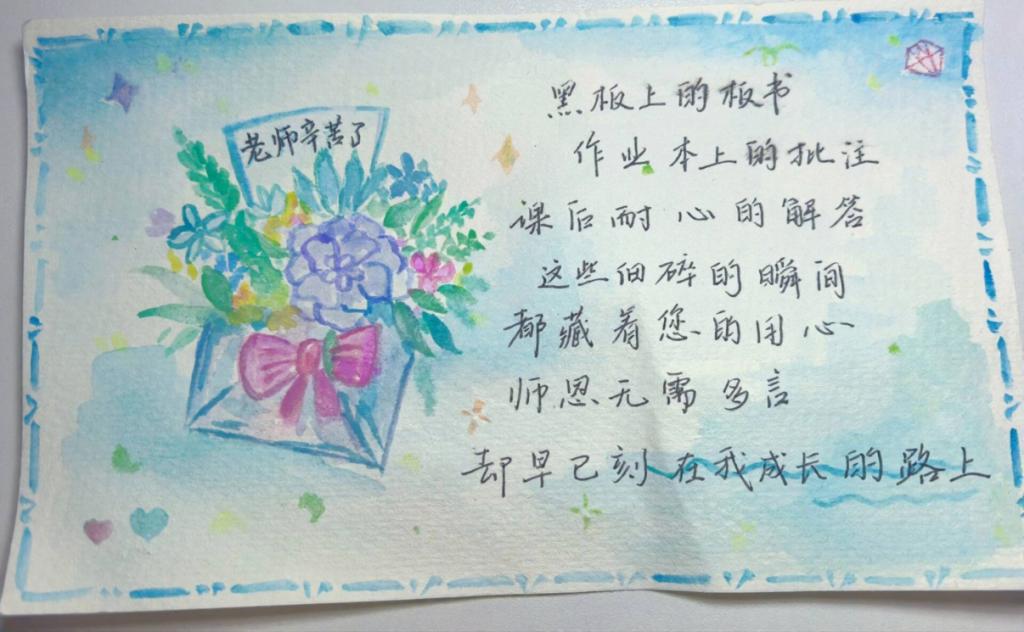 老师辛苦了
黑板上的板书
作业本上的批注
课后耐心的解答
这些细碎的瞬间
都藏着您的用心
师恩无需多言
却早已刻在我成长的路上